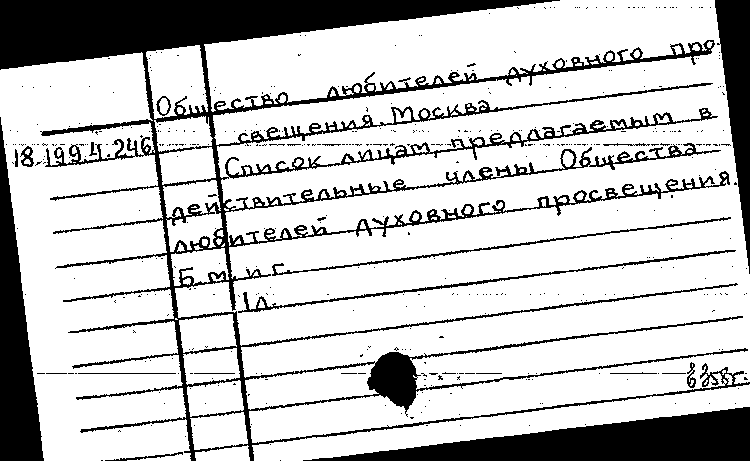 Общество любителей духовного про-
свещения. Москва.
18.199.4.246
Список лицам, предлагаемым в
действительные члены Общества
любителей духовного просвещения.
Б.м. и г.
1л.